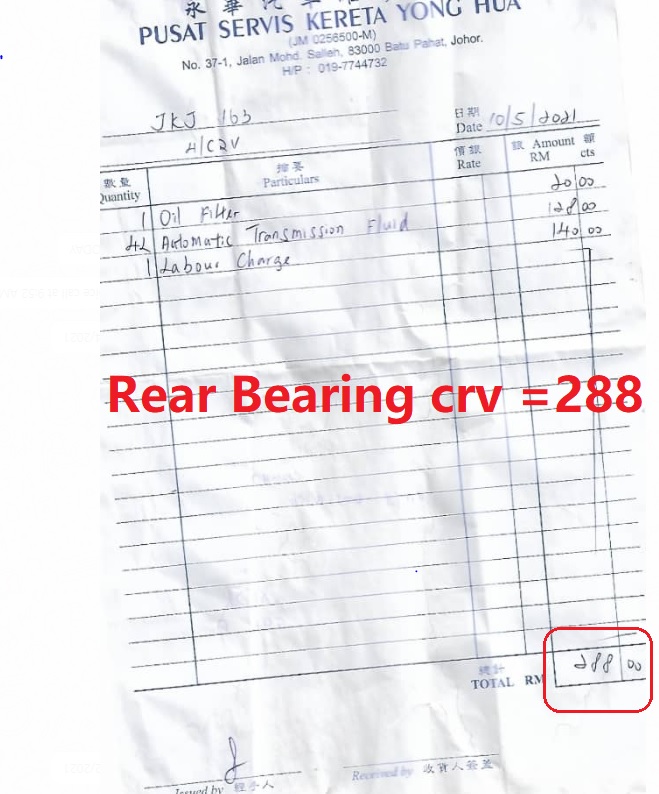 永華汽車
PUSAT SERVIS KERETA YONG HUA
(JM 0256500-M)
No. 37-1, Jalan Mohd. Salleh, 83000 Batu Pahat, Johor.
H/P : 019-7744732
JKJ 163
H/CRV
日期
Date 10/5/2021
數量
Quantity
摘要
Particulars
價銀
Rate
銀 Amount 額
RM cts
1 Oil Filter 20 00
4L Automatic Transmission Fluid 128 00
1 Labour Charge 140 00
Rear Bearing crv =288
總計
TOTAL RM 288 00
Issued by 經手人
Received by 收貨人簽蓋